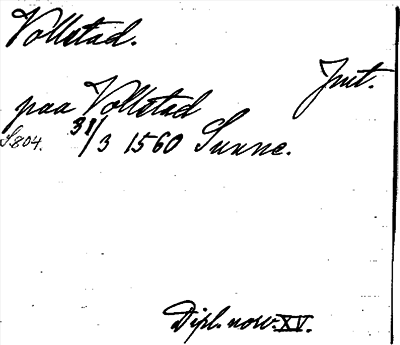 Vollstad.
Jnt.
paa Vollstad
S.804. 31/3 1560 Sunne.
Dipl. norv. XV.